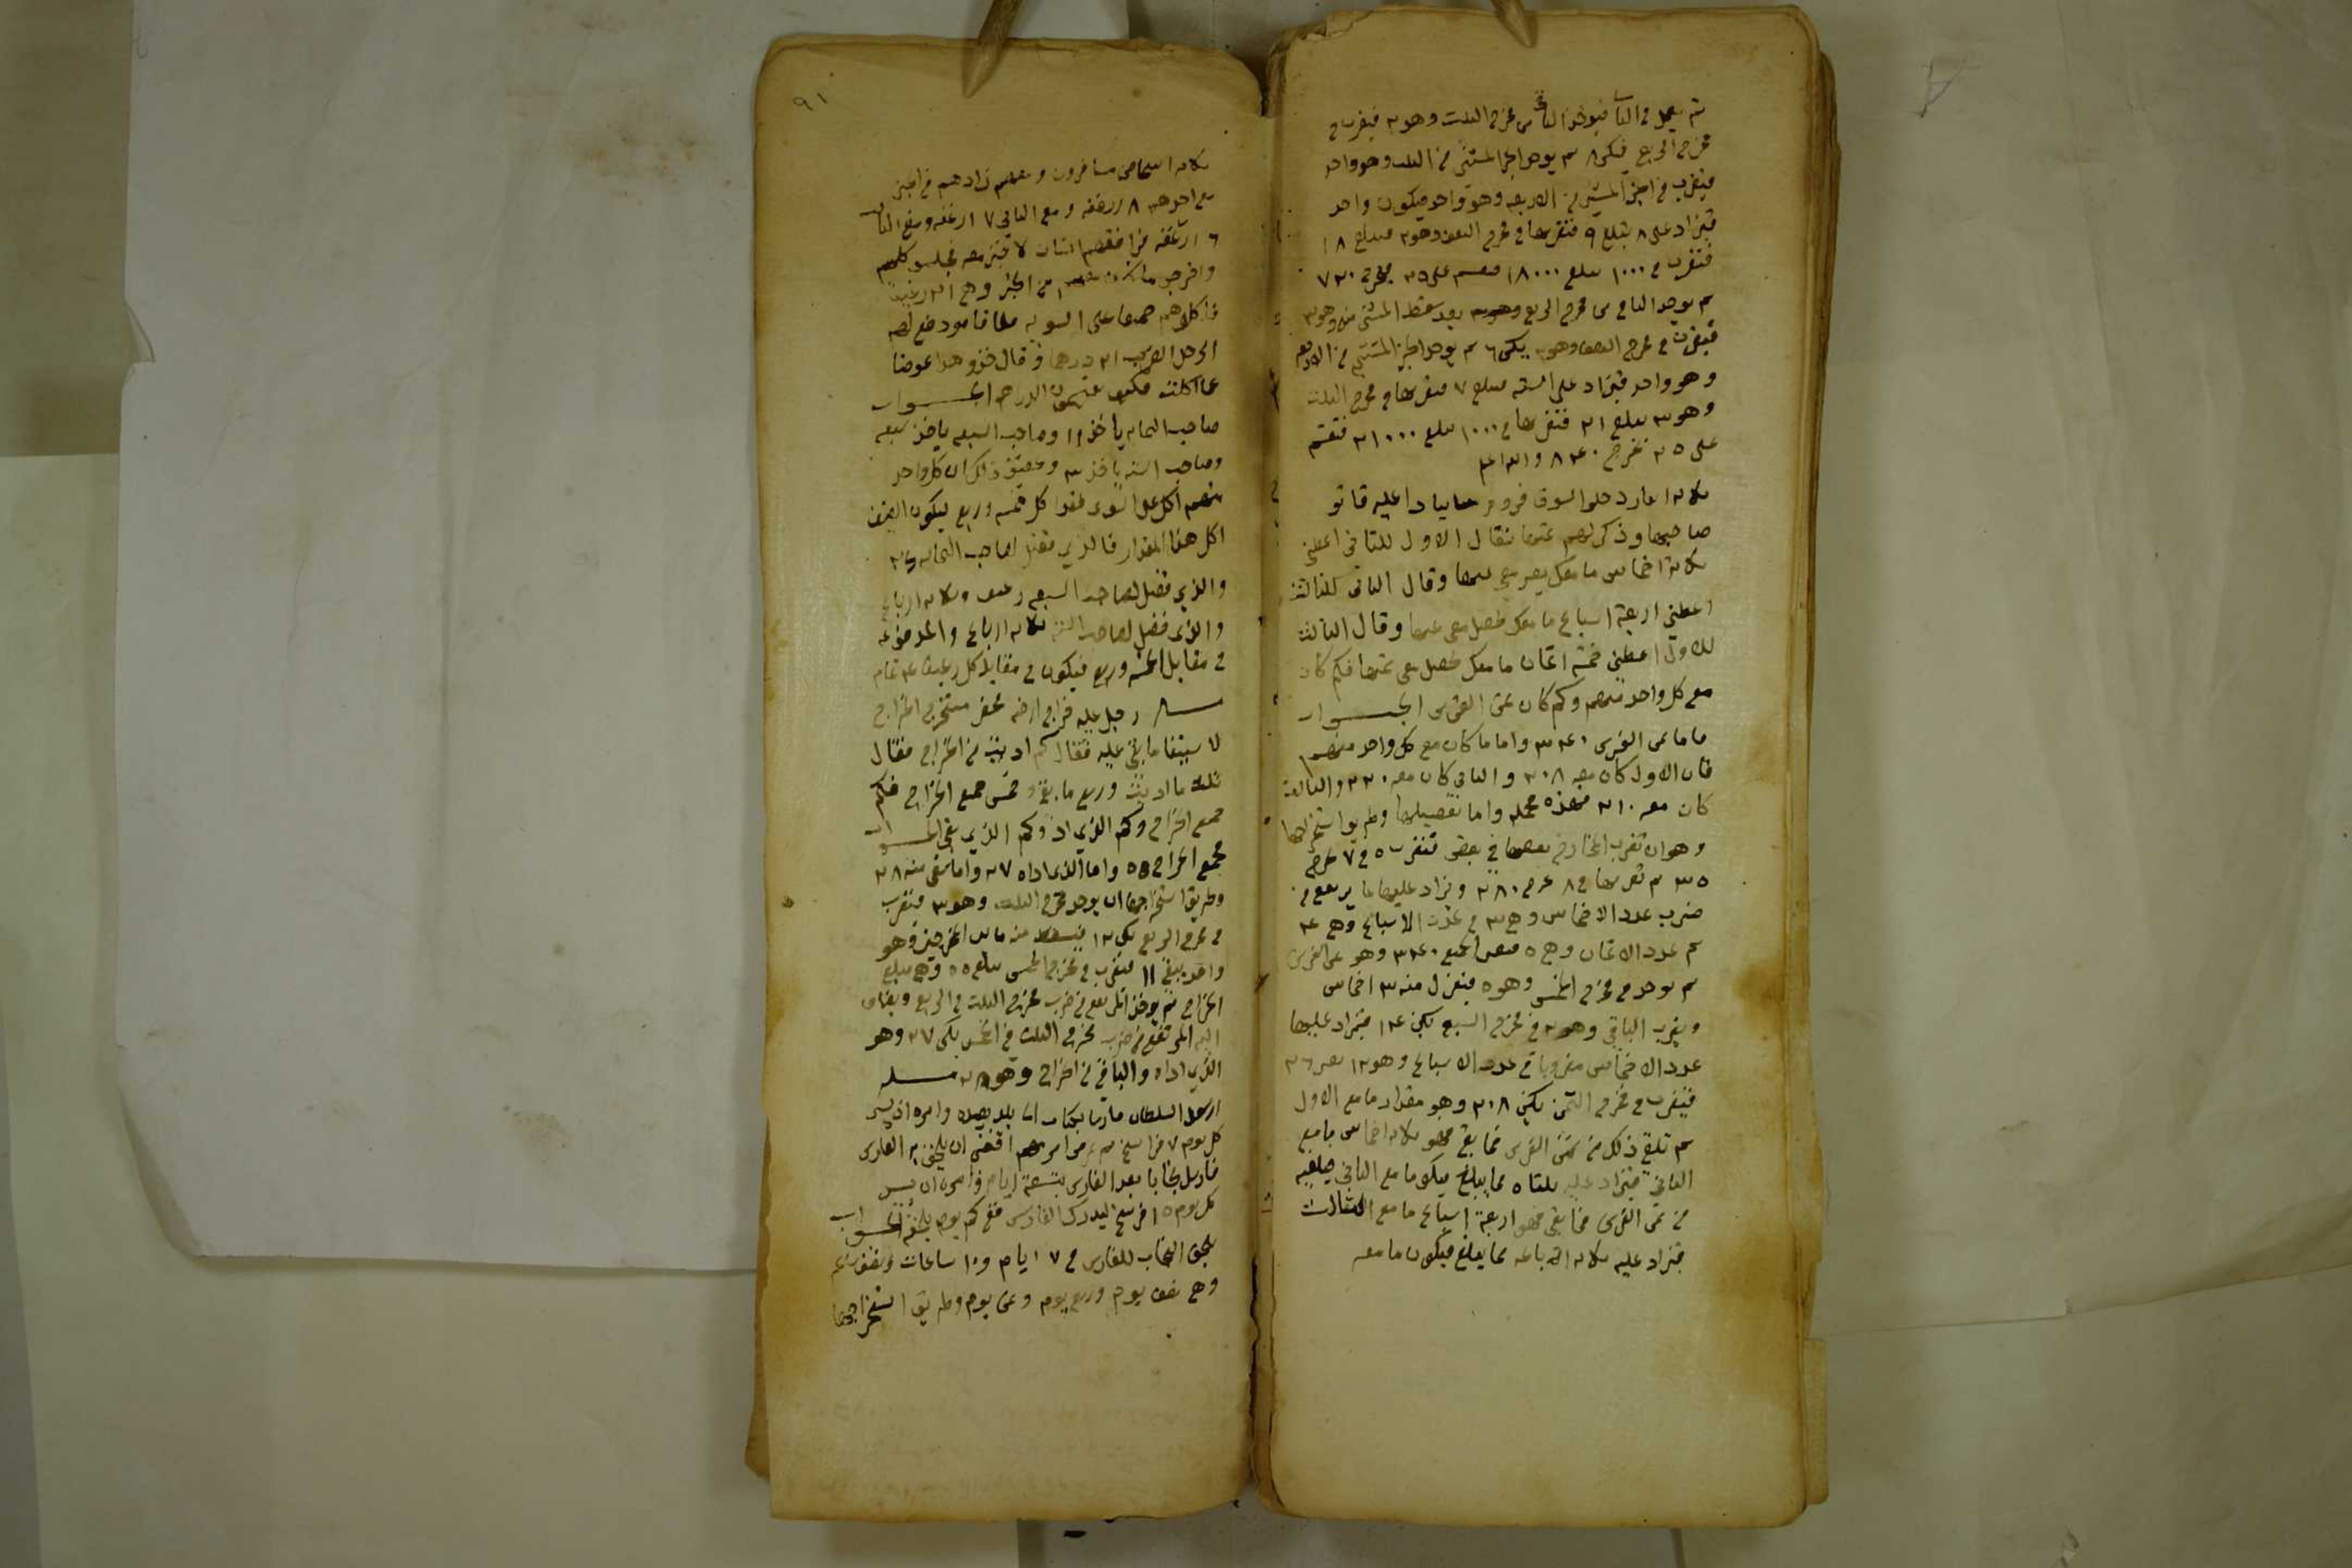 ثم يعمل في الثاني فيوخذ الباقي من مخرج الثلث وهو ٢ فيضرب في
مخرج الربع فيكن ٨ ثم يوخذ الجز المستثنى من الثلث وهو واحد
فيضرب في الجز المستثنى من الاربعه وهو واحد فيكون واحد
فيزاد على ٨ تبلغ ٩ فتضربها في مخرج النصف وهو ٢ فتبلغ ١٨
فتضرب في ١٠٠٠ تبلغ ١٨٠٠٠ فتقسم على ٢٥ يخرج ٧٢٠
ثم يوخذ الباقي من مخرج الربع وهو ٣ بعد سقط المستثنى منه وهو ٣
فيضرب في مخرج النصف وهو ٢ يكن ٦ ثم يوخذ الجز المستثنى من الاربعه
وهو واحد فيزاد على السته فتبلغ ٧ فتضربها في مخرج الثلث
وهو ٣ تبلغ ٢١ فتضربها في ١٠٠٠ تبلغ ٢١٠٠٠ فتقسم
على ٢٥ تخرج ٨٤٠ والله اعلم
ثلاثه انفار دخلوا السوق فروم عليه فاتو
صاحبها وذكر لهم ثمنها فقال الاول للثاني اعطني
ثلاثة اخماس ما معك يصير معي ثمنها وقال الثاني للثالث
اعطني اربعة اسباع ما معك يحصل معي ثمنها وقال الثالث
للاول اعطني خمسة اثمان ما معك يحصل معي ثمنها فكم كان
مع كل واحد منهم وكم كان ثمن الفرس الجواب
فاما ثمن الفرس ٣٤٠ واما ما كان مع كل واحد منهم
فان الاول كان معه ٢٠٨ والثاني كان معه ٢٢٠ والثالث
كان معه ٢١٠ فهذه مجمله واما تفصيلها وطريق استخراجها
وهو ان تضرب المخارج بعضها في بعض فتضرب ٥ في ٧ تخرج
٣٥ ثم تضربها في ٨ تخرج ٢٨٠ ويزاد عليها ما يرتفع من
ضرب عدد الاخماس وهي ٣ في عدد الاسباع وهي ٤
ثم عدد الاثمان وهي ٥ فيصير الجميع ٣٤٠ وهو ثمن الفرس
ثم يوخذ من مخرج الخمس وهو ٥ فينزل منه ٣ اخماس
ويضرب الباقي وهو ٢ في مخرج السبع يكن ١٤ فيزاد عليها
عدد الاخماس مضروبا في عدد الاسباع وهو ١٢ تصير ٢٦
فيضرب في مخرج الثمن يكن ٢٠٨ وهو مقدار ما مع الاول
ثم تلقي ذلك من ثمن الفرس فما بقي فهو ثلاثه اخماس ما مع
الثاني فيزاد عليه ثلثاه فما يبلغ فيكو ما مع الثاني فيلقيه
من ثمن الفرس فما بقي فهو اربعة اسباع ما مع الثالث
فيزاد عليه ثلاثه ارباعه فما يبلغ فيكون ما معه
٩١
ثلاثه اشخاص مسافرون ومعهم زادهم من الخبز
مع احدهم ٨ ارغفه ومع الثاني ٧ ارغفه ومع الثالث
٦ ارغفه فرافقهم انسان لا خبز معه فجلسو كلهم
واخرجو ما كان معهم من الخبز وهي ٢١ رغيف
فاكلوهم جميعا على السويه فلما قامو دفع لهم
الرجل الغريب ٢١ درهما وقال خذو هذا عوضا
عما اكلت فكيف يقتسمون الدراهم الجواب
صاحب الثمانيه ياخذ ١١ وصاحب السبعه ياخذ سبعه
وصاحب السته ياخذ ٣ وتحقيق ذلك ان كل واحد
منهم اكل على السوى فقد اكل خمسه وربع فيكون الضيف
اكل هذا المقدار فالذي فضل لصاحب الثمانيه
والذي فضل لصاحب السبعه رغيف وثلاثه ارباع
والذي فضل لصاحب السته ثلاثه ارباع والمدفوع
في مقابل الخمسه وربع فيكون في مقابلة كل رغيف ٤ تمام
مسله رجل عليه خراج ارضه فحضر مستخرج الخراج
لاستيفا ما بقي عليه فقال كم اديت من الخراج فقال
ثلث ما اديت وربع ما بقي خمس جميع الخراج فكم
جميع الخراج وكم الذي ادى وكم الذي بقي الجواب
جميع الخراج ٥٥ واما الذي اداه ٢٧ واما بقي منه ٢٨
وطريق استخراجها ان يوخذ مخرج الثلث وهو ٣ فيضرب
في مخرج الربع يكن ١٢ فيسقط منه ما بين المخرجين وهو
واحد يبقى ١١ فيضرب في مخرج الخمس تبلغ ٥٥ وهي مبلغ
الخراج ثم يوخذ المرتفع من ضرب مخرج الثلث في الربع ويضاف
اليه المرتفع من ضرب مخرج الثلث في الخمس يكن ٢٧ وهو
الذي اداه والباقي من الخراج وهو ٢٨ مسله
ارسل السلطان فارسا بكتاب الى بلد بعيده وامره ان يسير
كل يوم ٧ فراسخ ثم اقتضى ان يلحق به الفارس
فارسل نجابا بعد الفارس بتسعة ايام وامره ان يسير
كل يوم ١٥ فرسخ ليدرك الفارس ففي كم يوم يلحقه الجواب
يلحق النجاب للفارس في ٧ ايام و٢١ ساعات ونصف ساعه
وهي نصف يوم وربع يوم وثمن يوم وطريق استخراجها